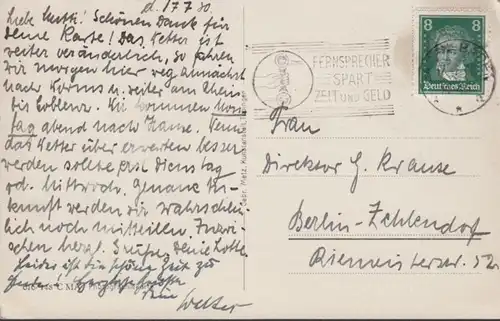 d. 17.7.30.
Liebe Mutti! Schönen Dank für
Deine Karte! Das Wetter ist
weiter veränderlich, so fahren
wir morgen hier weg zunächst
nach Worms u. weiter am Rhein
bis Coblenz. Wir kommen
tag abend nach Hause. Wenn
das Wetter über erwarten besser
werden sollte erst Dienstag
od. Mittwoch. Genaue An-
kunft werden wir wahrschein-
lich noch mitteilen. Inzwi-
schen herzl. Grüße, Deine Lotte.
Leider ist die schöne Zeit zu
Ende!
Dein Walter
Gebr. Metz, Kunstanstalt, Tübingen
FERNSPRECHER
SPART
ZEIT UND GELD
8 8
Deutsches Reich
Frau
Direktor G. Krause
Berlin-Zehlendorf
Riemeisterstr. 52